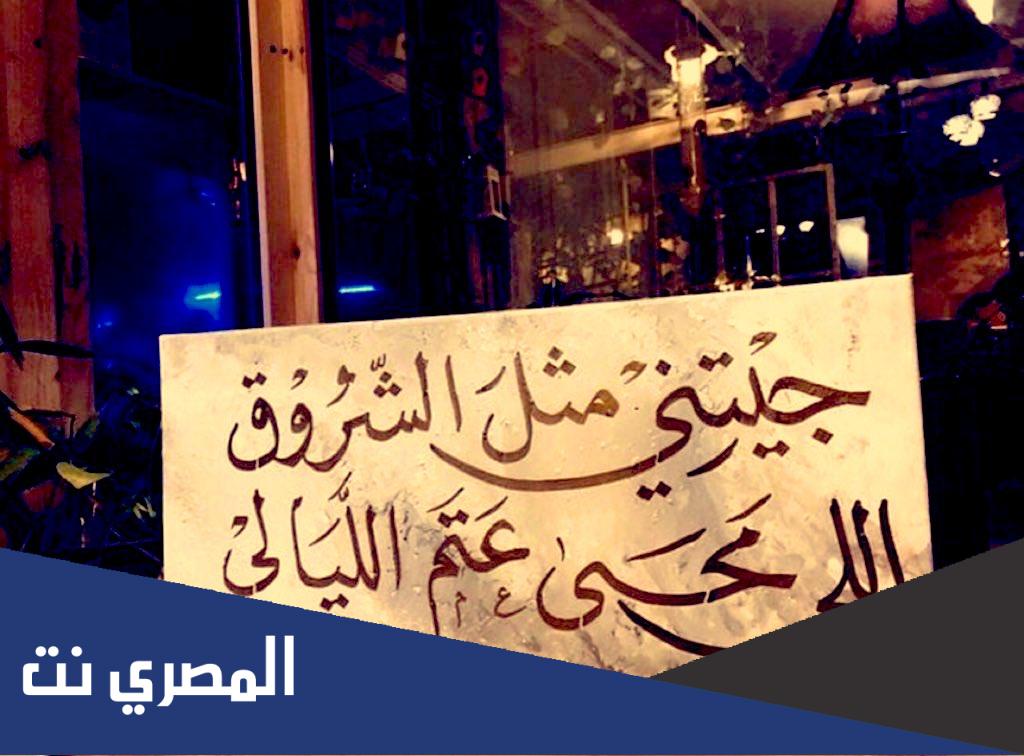 جِيْتني مثلَ الشُّرُوْق
اللي مَحَى عَتَم اللَّيَالي
المصري نت